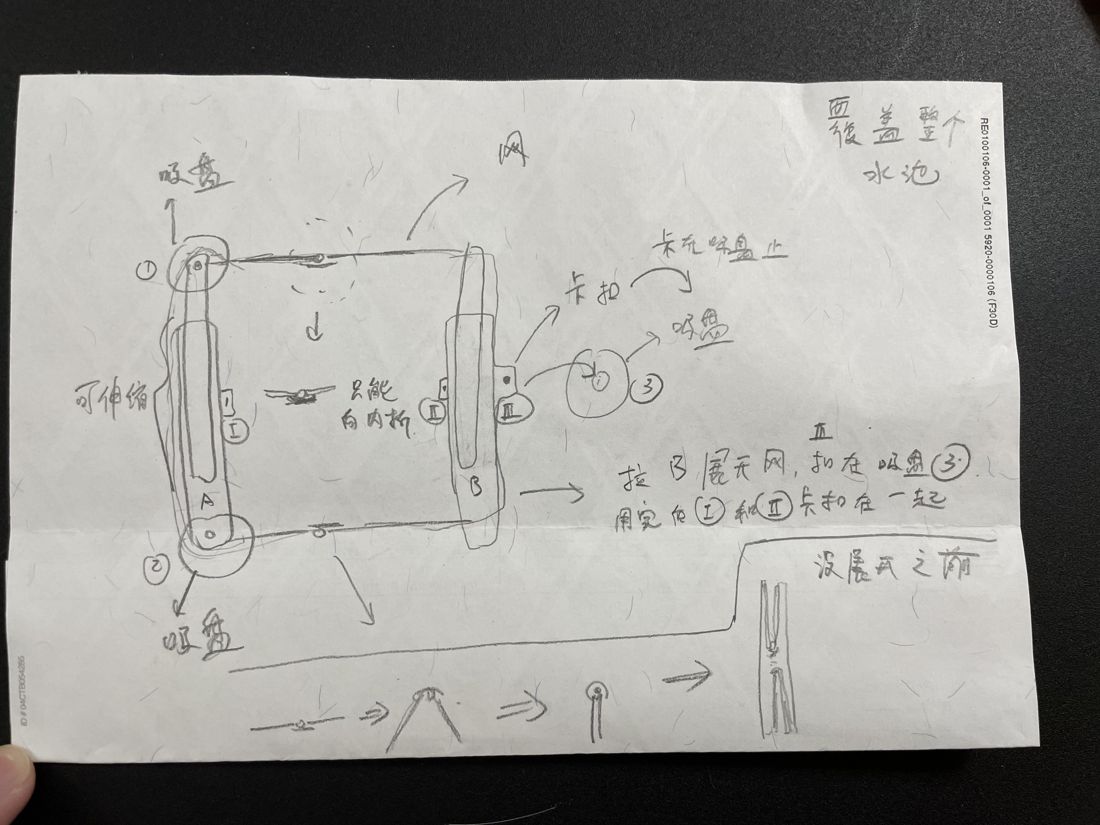 覆盖整个
水池
RE0100106-0001_of_0001 5920-0000106 (F30D)
网
吸盘
①
卡在吸盘上
卡扣
吸盘
③
可伸缩
Ⅰ
只能
向内折
Ⅱ
Ⅲ
A
B
Ⅲ
拉B展开网,扣在吸盘③.
用完后Ⅰ和Ⅱ卡扣在一起
②
吸盘
没展开之前
ID # 04CTB054265